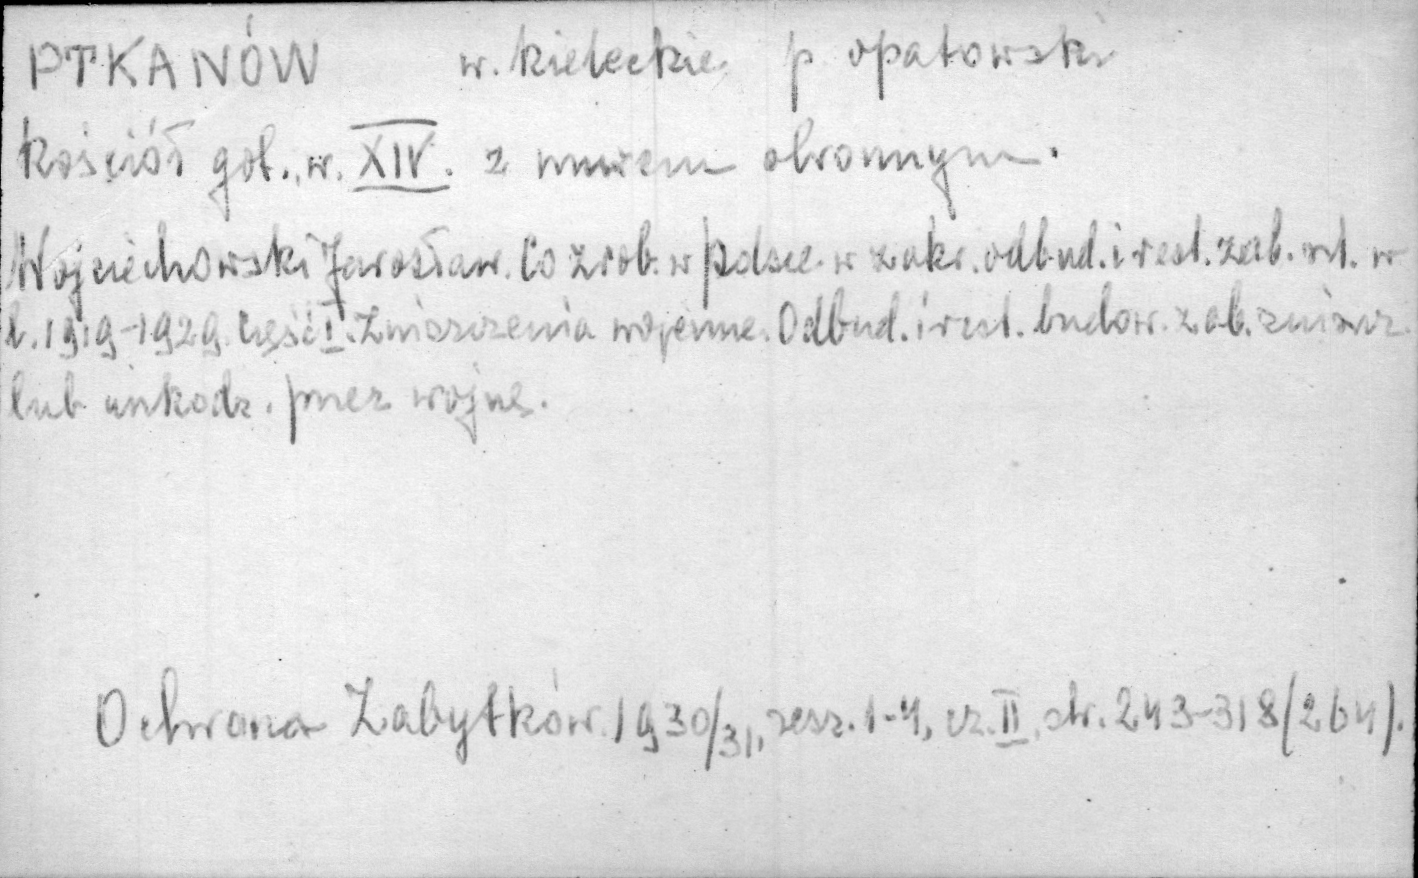 PTKANÓW w. kieleckie p opatowski
Kościół got., w. XIV. z murem obronnym.
Wojciechowski Jarosław. Co zrob. w Polsce w zakr. odbud. i rest. zab. szt. w
l. 1919-1929. Część I. Zniszczenia wojenne. Odbud. i rest. budow. zab. zniszcz.
lub uszkodz. przez wojnę.
Ochrona Zabytków. 1930/31, zesz. 1-4, cz. II, str. 243-318 (264).